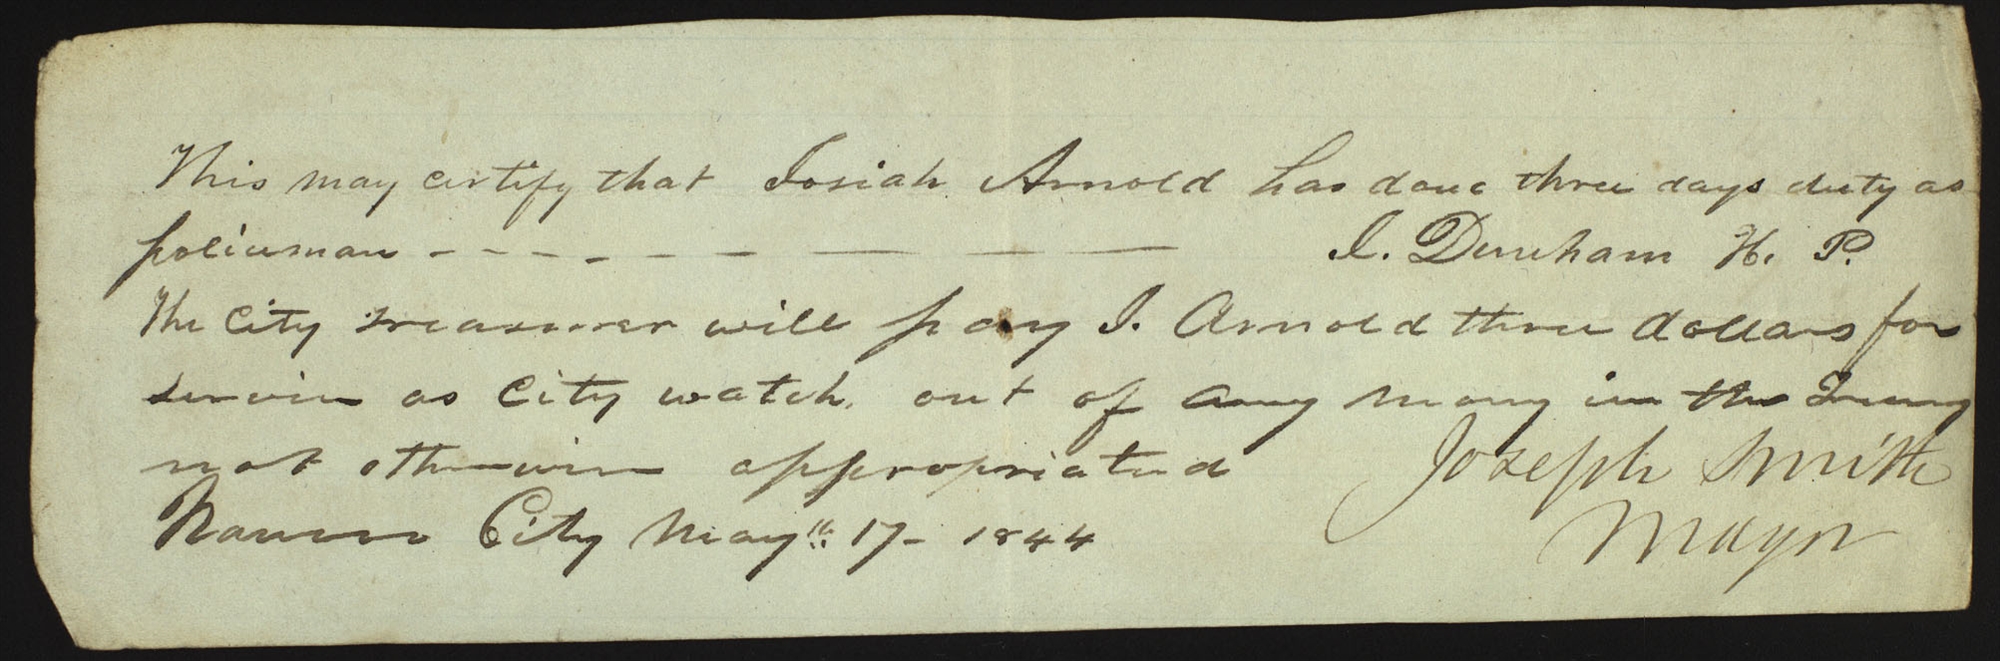 This may certify that Josiah Arnold has done three days duty as
policeman - - - - - - - — — — J. Dunham H. P.
The City treasurer will pay J. Arnold three dollars for
service as City watch, out of any mony in the
not otherwise appropriated Joseph Smith
Nauvoo City May 17- 1844 Mayor